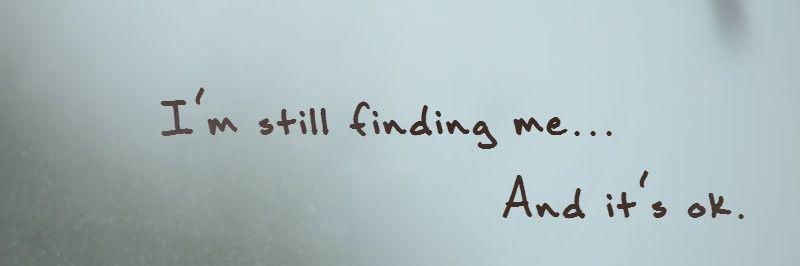 I'm still finding me...
And it's ok.